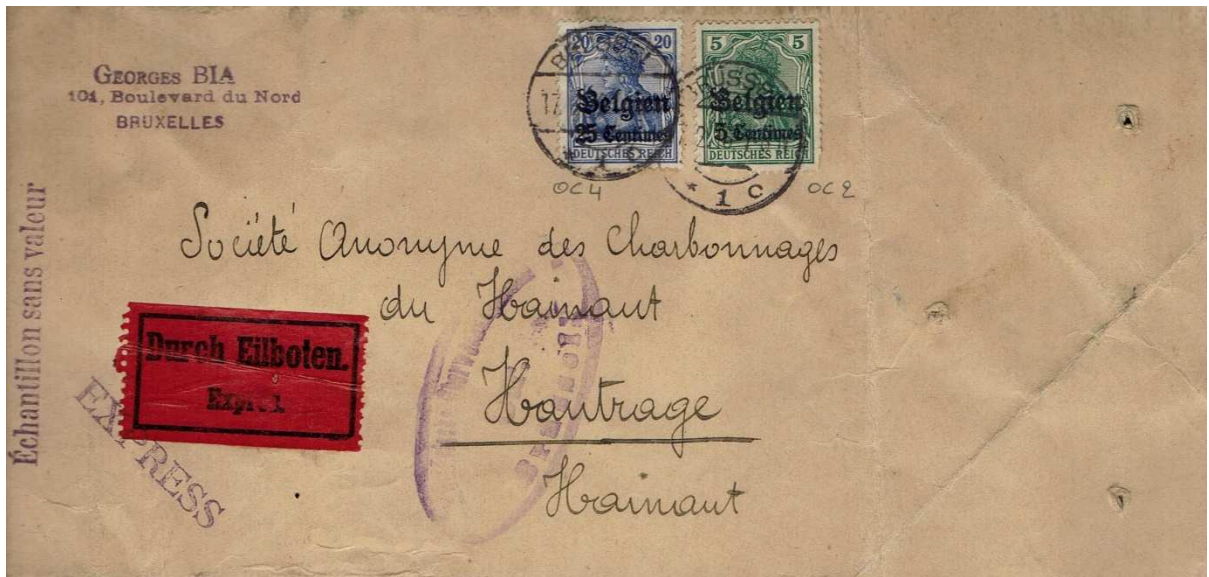 GEORGES BIA
101, Boulevard du Nord
BRUXELLES
20 20
Belgien
25 Centimes
DEUTSCHES REICH
5 5
Belgien
5 Centimes
DEUTSCHES REICH
17
* 1 C
OC4
OC2
Échantillon sans valeur
Société Anonyme des Charbonnages
du Hainaut
Hautrage
Hainaut
Durch Eilboten.
EXPRESS